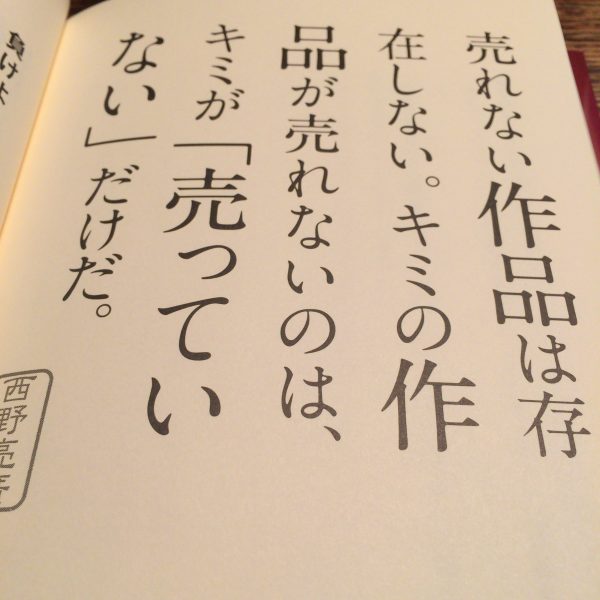 売れない作品は存
在しない。キミの作
品が売れないのは、
キミが「売ってい
ない」だけだ。
西野亮
負け